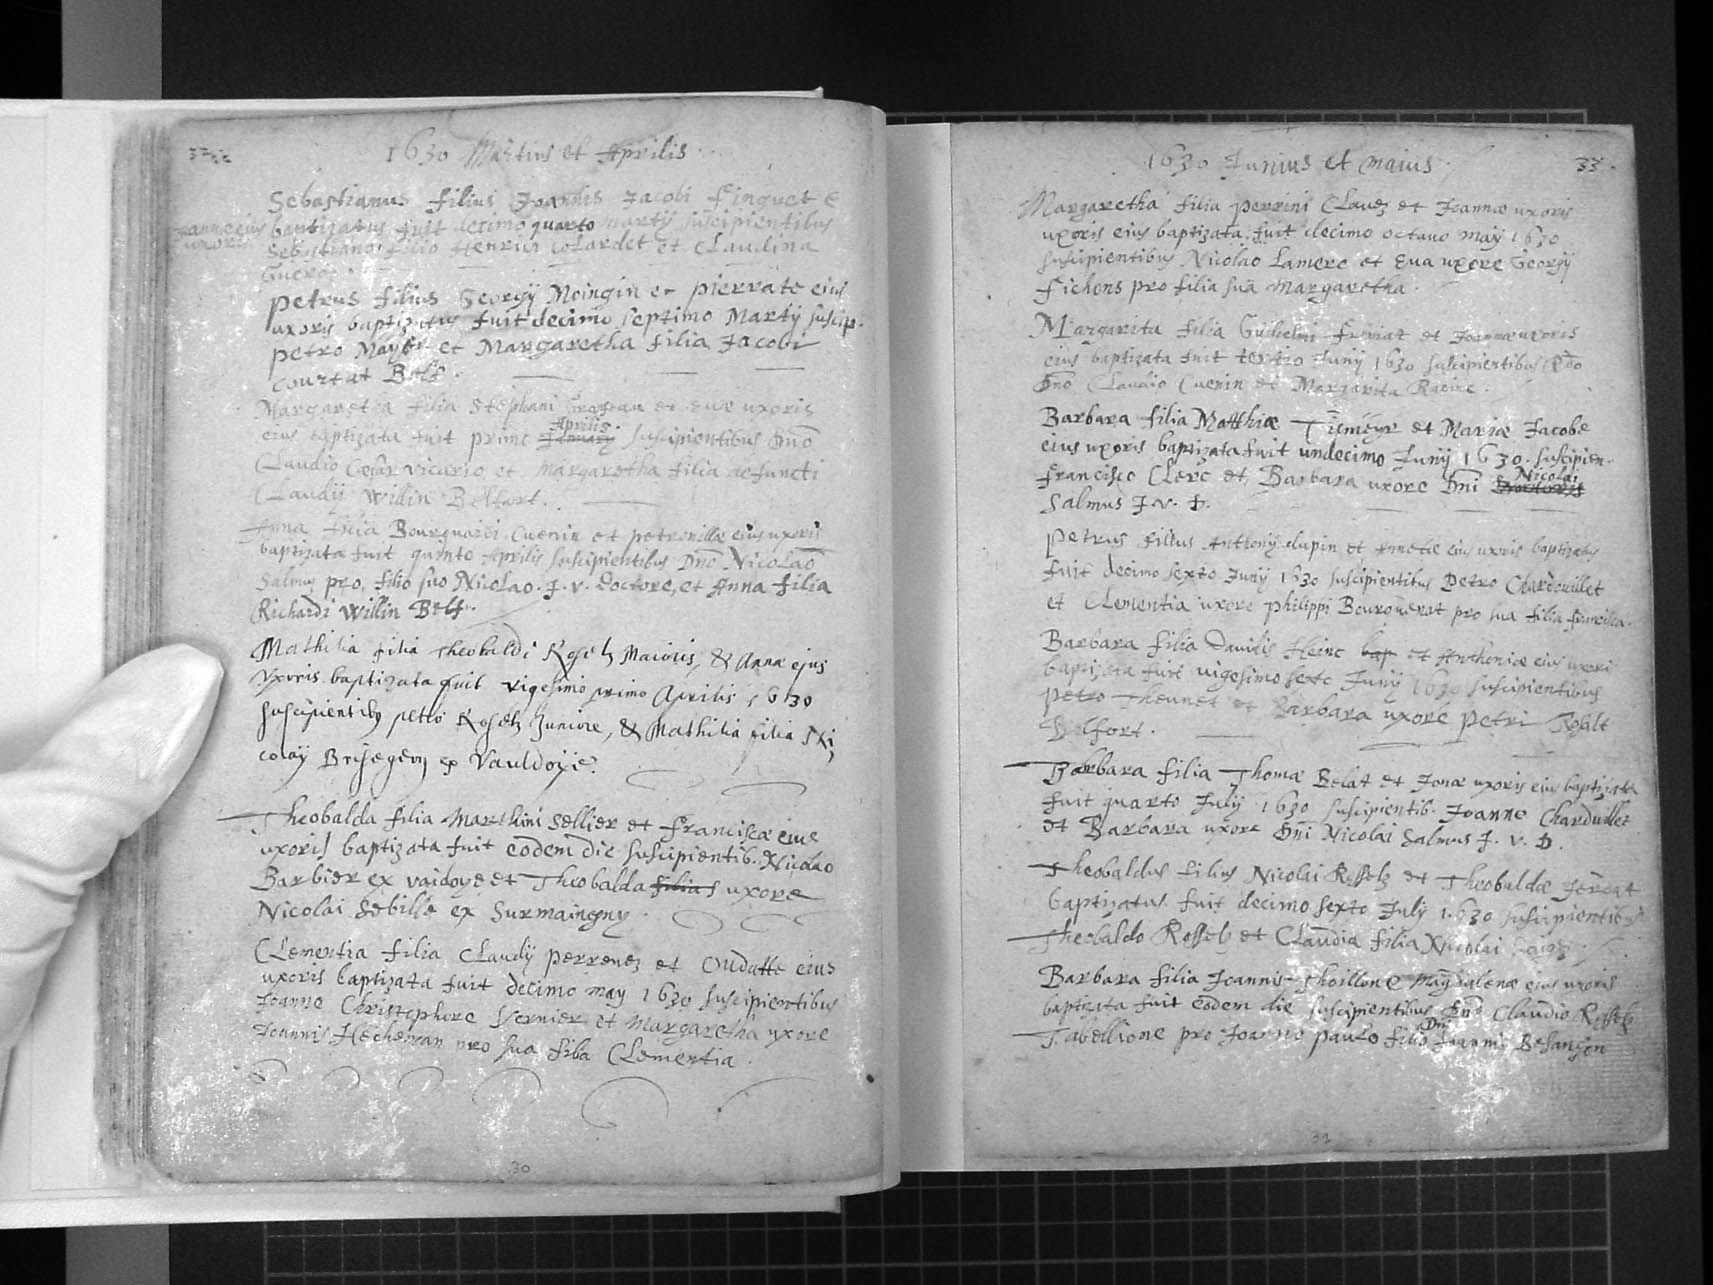 1630 Martius et Aprilis
Sebastianus filius Joannis Jacobi Finquet &
Joannæ eius baptizatus fuit decimo quarto martij suscipientibus
uxoris Sebastiano filio Henrici Colardet et Claudina
Guerot.
Petrus filius Georgij Moingin et pierrate eius
uxoris baptizatus fuit decimo septimo Martij suscip.
petro et Margaretha filia Jacobi
Courtat Belf.
Margaretha filia Stephani et Evæ uxoris
eius baptizata fuit primo January Aprilis suscipientibus dno
Claudio vicario et margaretha filia defuncti
Claudij Willin Belfort.
Anna filia Bourquardi Cuenin et petronillæ eius uxoris
baptizata fuit quinto Aprilis suscipientibus Dno Nicolao
Salmus pro filio suo Nicolao J. v. Doctore, et Anna filia
Richardi Willin Belf.
Mathilia filia Theobaldi Roselz Maioris, & Annæ ejus
Vxoris baptizata fuit vigesimo primo Aprilis 1630
suscipientibus petro Roselz Juniore, & Mathilia filia Ni,
colaÿ ex Vauldoÿe.
Theobalda filia Marthini Sellier et franciscæ eius
uxoris baptizata fuit eodem die suscipientib. Nicolao
Barbier ex vaidoye et Theobalda filia uxore
Nicolai Sebille ex Surmaingny.
Clementia filia Claudij perrenez et Oudatte eius
uxoris baptizata fuit decimo may 1630 suscipientibus
Joanne Christophore Vernier et Margaretha uxore
Joannis Hecheman pro sua filia Clementia.
30
1630 Junius et maius
33.
Margaretha filia perrini Clauez et Joannæ uxoris
uxoris eius baptizata fuit decimo octavo may 1630
suscipientibus Nicolao Lamere et Eva uxore Georgij
Fichens pro filia sua Margaretha.
Margarita filia Guilielmi et Joannæ uxoris
eius baptizata fuit tertio Junij 1630 suscipientibus Rdo
Dno Claudio Cuenin et Margarita Racine.
Barbara filia Matthiæ Tiemeyr et Mariæ Jacobe
eius uxoris baptizata fuit undecimo Junij 1630. suscipien.
francisco Clerc et Barbara uxore Dni Doctoris Nicolai
Salmus J. v. D.
Petrus filius Anthonij dupin et Annetæ eius uxoris baptizatus
fuit decimo sexto Junij 1630 suscipientibus Petro Chardouillet
et Clementia uxore philippi Bourquerat pro sua filia francisca.
Barbara filia Davidis Heinc bap et Antheniæ eius uxoris
baptizata fuit vigesimo sexto Junij 1630 suscipientibus
Petro Thevnet et Barbara uxore Petri
Belfort.
Barbara filia Thomæ Belat et Jonæ uxoris eius baptizata
fuit quarto July 1630 suscipientib. Joanne Charduillet
et Barbara uxore Dni Nicolai Salmus J. v. D.
Theobaldus filius Nicolai Rosselz et Theobaldæ
baptizatus fuit decimo sexto July 1630 suscipientibus
Theobaldo Rosselz et Claudia filia Nicolai
Barbara filia Joannis Thoillon e magdalenæ eius uxoris
baptizata fuit eodem die suscipientibus Dno Claudio Rosselz
Tabellione pro Joanne paulo filio Dni Joannis Besançon
31